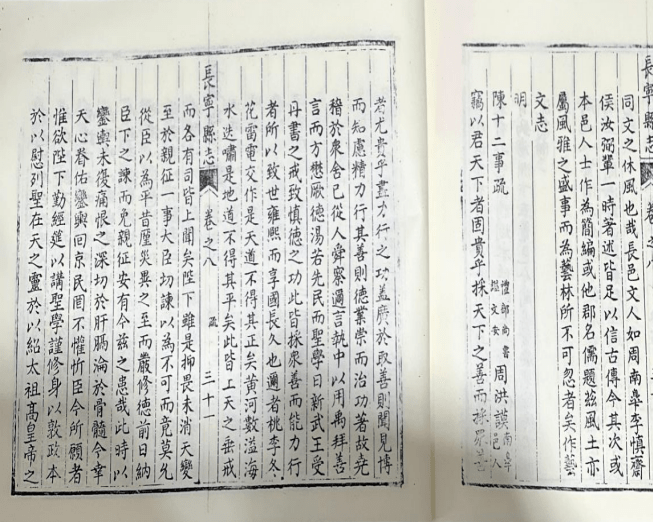 長寧縣志 卷之八
同文之休風也哉長邑文人如周南臯李慎齋
侯汝弼輩一時著述皆足以信古傳今其次或
本邑人士作為簡編或他郡名儒題茲風土亦
屬風雅之盛事而為藝林所不可忽者矣作藝
文志
明
陳十二事疏 禮部尚書 諡文安 周洪謨 南臯 邑人
竊以君天下者固貴乎採天下之善而採眾善
者尤貴乎盡力行之功蓋廣於取善則聞見博
而知慮精力行其善則德業崇而治功著故堯
稽於衆舍已從人舜察邇言執中以用禹拜善
言而方懋厥德湯若先民而聖學日新武王受
丹書之戒致慎德之功此皆採衆善而能力行
者所以致世雍熙而享國長久也邇者桃李冬
花雷電交作是天道不得其正矣黃河數溢海
水迭嘯是地道不得其平矣此皆上天之垂戒
長寧縣志 卷之八 疏 三十一
而各有司皆上聞矣陛下雖是抑畏未消天變
至於親征一事大臣切諫以為不可而竟莫允
從臣以為平昔歷災異之至而嚴修德前日納
臣下之諫而免親征安有今茲之患哉此時以
鑾輿未復痛恨之深切於肝膈淪於骨髓今幸
天心眷佑鑾輿回京民罔不懽忻臣今所願者
惟欲陛下勤經筵以講聖學謹修身以敦政本
於以慰列聖在天之靈於以紹太祖高皇帝之